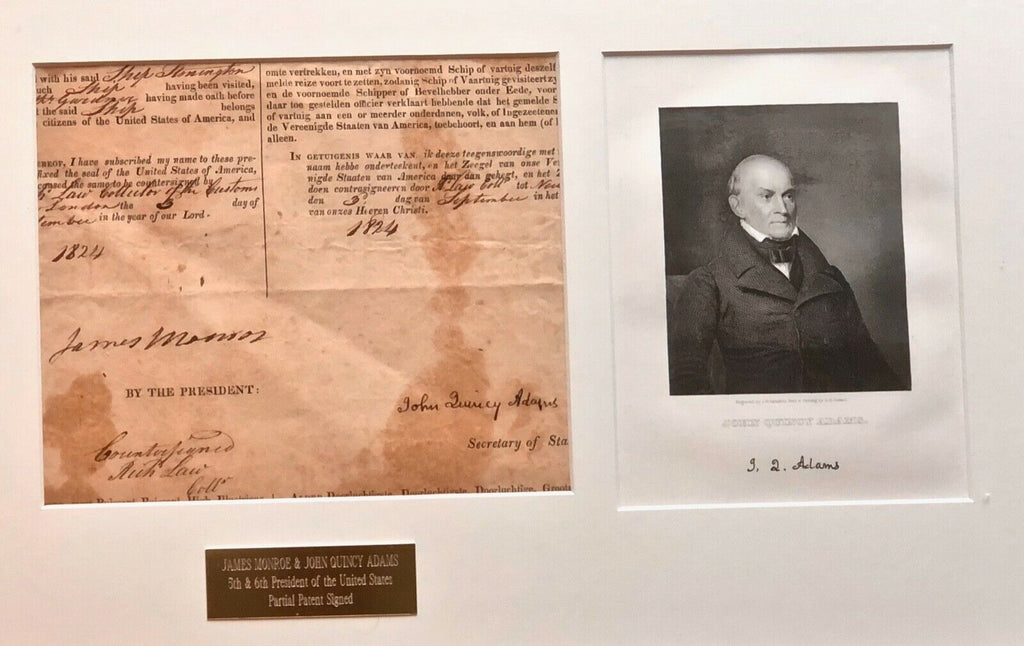 with his said Ship Stonington
uch Ship having been visited,
Gardner having made oath before
t the said Ship belongs
citizens of the United States of America, and
EREOF, I have subscribed my name to these pre-
fixed the seal of the United States of America,
caused the same to be countersigned by
Law Collector of the Customs
London the 3 day of
tember in the year of our Lord.
1824
omte vertrekken, en met zyn voornoemd Schip of vartuig deszelf
melde reize voort te zetten, zodanig Schip of Vaartuig gevisiteert zy
en de voornoemde Schipper of Bevelhebber onder Eede, voor
daar toe gestelden officier verklaart hebbende dat het gemelde S
of vartuig aan een or meerder onderdanen, volk, of Ingezeetenen
de Vereenigde Staaten van America, toebehoort, en aan hem (of
alleen.
IN GETUIGENIS WAAR VAN, ik deeze teegenswoordige met
naam hebbe onderteekent, en het Zeegel van onse Ve
nigde Staaten van America daar aan gehegt, en het
doen contrasigneeren door R Law Coll tot New
den 3d dag van September in het
van onzes Heeren Christi.
1824
James Monroe
BY THE PRESIDENT:
John Quincy Adams
Secretary of Sta
Countersigned
Rich Law
Collr
JOHN QUINCY ADAMS.
J. Q. Adams
JAMES MONROE & JOHN QUINCY ADAMS
5th & 6th President of the United States
Partial Patent Signed